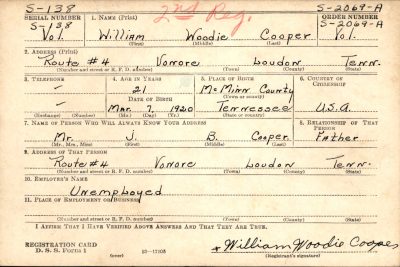 S-138 2nd Reg. S-2069-A
SERIAL NUMBER 1. NAME (Print) ORDER NUMBER
S-138 S-2069-A
Vol. William Woodie Cooper Vol.
(First) (Middle) (Last)
2. ADDRESS (Print)
Route #4 Vonore Loudon Tenn.
(Number and street or R. F. D. number) (Town) (County) (State)
3. TELEPHONE 4. AGE IN YEARS 5. PLACE OF BIRTH 6. COUNTRY OF CITIZENSHIP
- 21 McMinn County
DATE OF BIRTH (Town or county)
- Mar. 7, 1920 Tennessee U.S.A.
(Exchange) (Number) (Mo.) (Day) (Yr.) (State or country)
7. NAME OF PERSON WHO WILL ALWAYS KNOW YOUR ADDRESS 8. RELATIONSHIP OF THAT PERSON
Mr. J. B. Cooper Father
(Mr., Mrs., Miss) (First) (Middle) (Last)
9. ADDRESS OF THAT PERSON
Route #4 Vonore Loudon Tenn.
(Number and street or R. F. D. number) (Town) (County) (State)
10. EMPLOYER'S NAME
Unemployed
11. PLACE OF EMPLOYMENT OR BUSINESS
(Number and street or R. F. D. number) (Town) (County) (State)
I AFFIRM THAT I HAVE VERIFIED ABOVE ANSWERS AND THAT THEY ARE TRUE.
REGISTRATION CARD
D. S. S. Form 1 (over) William Woodie Cooper
(Registrant's signature)